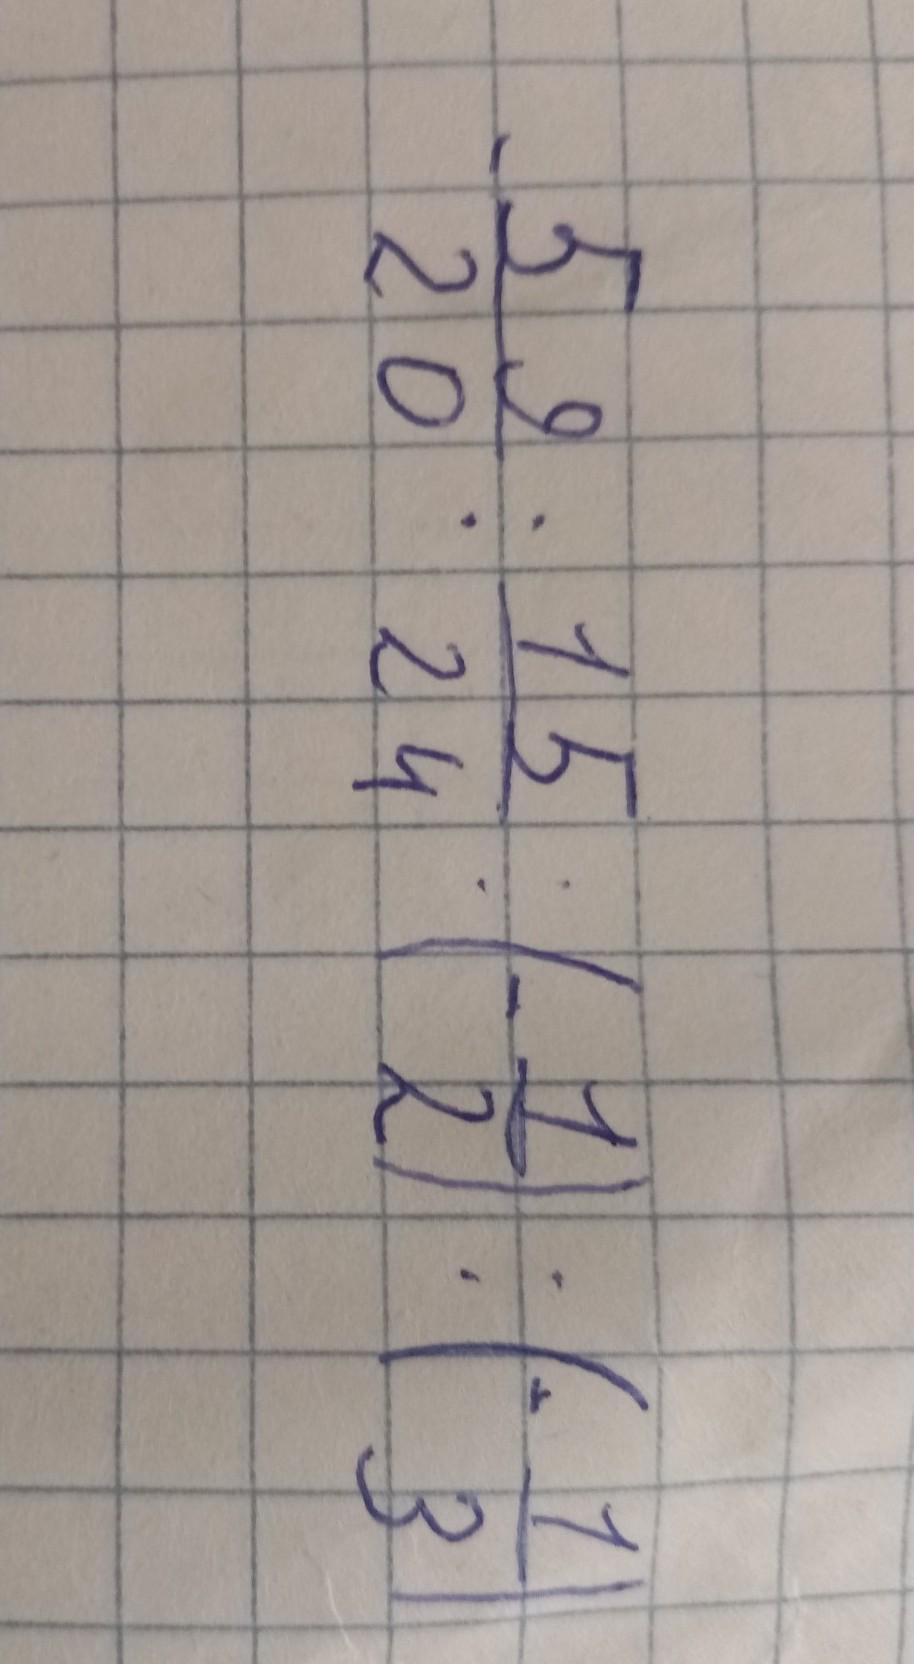 - 59/20 : 15/24 : (- 1/2) : (- 1/3)